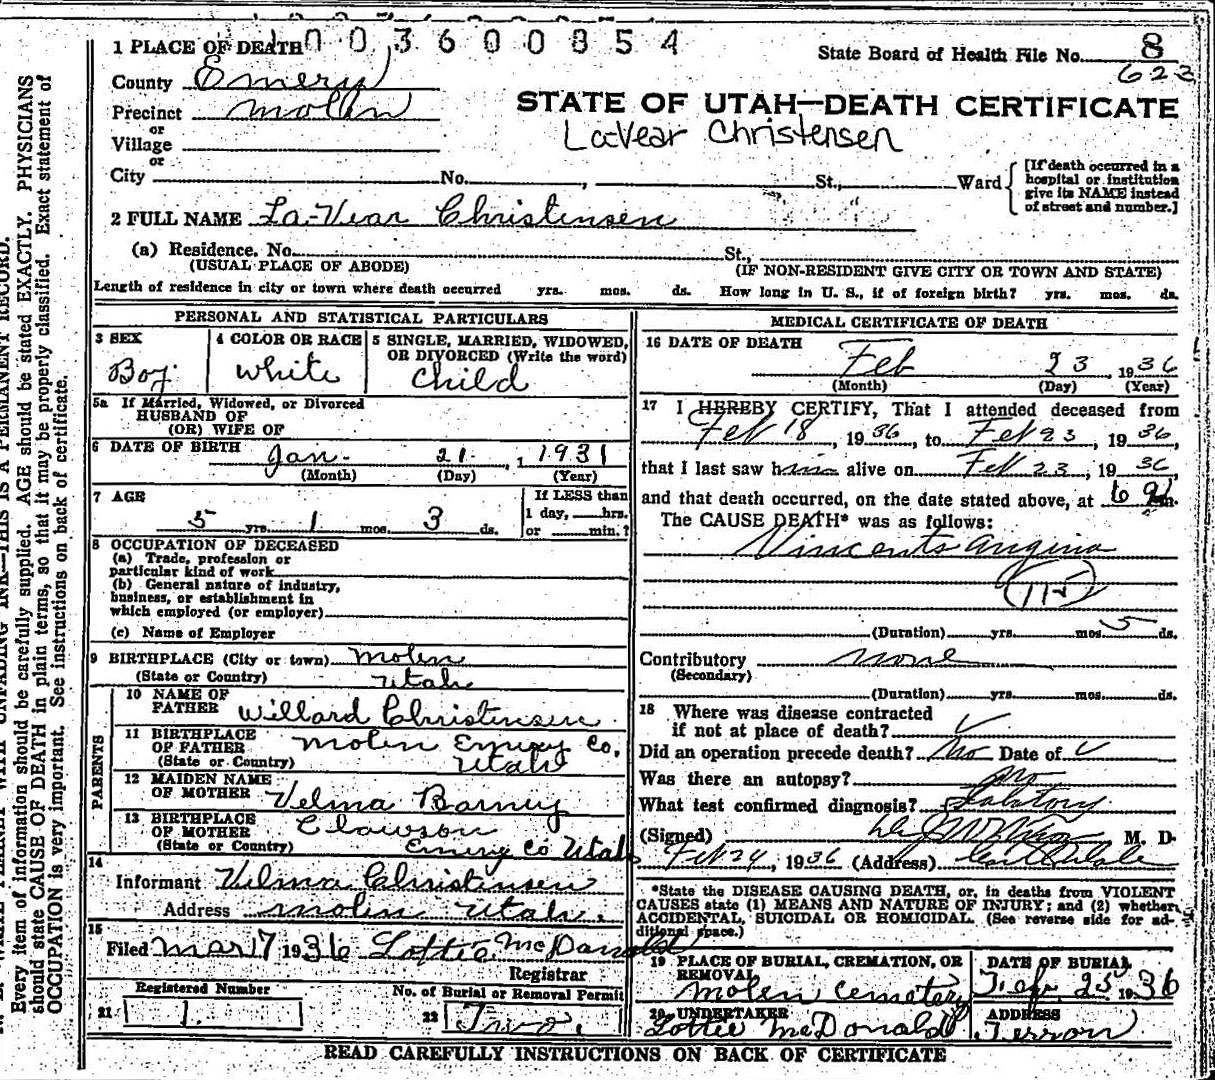 1003600854
State Board of Health File No. 8
622
1 PLACE OF DEATH
County Emery
Precinct Molen
or
Village
or
City No. , St., Ward
[If death occurred in a hospital or institution give its NAME instead of street and number.]
STATE OF UTAH—DEATH CERTIFICATE
LaVear Christensen
2 FULL NAME La-Vear Christensen
(a) Residence. No. St.,
(USUAL PLACE OF ABODE) (IF NON-RESIDENT GIVE CITY OR TOWN AND STATE)
Length of residence in city or town where death occurred yrs. mos. ds. How long in U. S., if of foreign birth? yrs. mos. ds.
PERSONAL AND STATISTICAL PARTICULARS
3 SEX
Boy
4 COLOR OR RACE
White
5 SINGLE, MARRIED, WIDOWED, OR DIVORCED (Write the word)
Child
5a If Married, Widowed, or Divorced
HUSBAND OF
(OR) WIFE OF
6 DATE OF BIRTH Jan. 21. , 1 1931
(Month) (Day) (Year)
7 AGE
5 yrs. 1 mos. 3 ds.
If LESS than
1 day, hrs.
or min.?
8 OCCUPATION OF DECEASED
(a) Trade, profession or
particular kind of work
(b) General nature of industry,
business, or establishment in
which employed (or employer)
(c) Name of Employer
9 BIRTHPLACE (City or town) Molen
(State or Country) Utah
PARENTS
10 NAME OF
FATHER Willard Christensen
11 BIRTHPLACE
OF FATHER Molen Emery Co.
(State or Country) Utah
12 MAIDEN NAME
OF MOTHER Velma Barney
13 BIRTHPLACE
OF MOTHER Clawson
(State or Country) Emery Co Utah
14
Informant Velma Christensen
Address Molen Utah.
15
Filed Mar 7 1936 Lottie McDonald
Registrar
Registered Number
21 1.
No. of Burial or Removal Permit
22 Two.
MEDICAL CERTIFICATE OF DEATH
16 DATE OF DEATH
Feb 23 , 1936
(Month) (Day) (Year)
17 I HEREBY CERTIFY, That I attended deceased from
Feb 18 , 1936, to Feb 23 , 1936,
that I last saw him alive on Feb 23 , 1936
and that death occurred, on the date stated above, at 6 m.
The CAUSE DEATH* was as follows:
Vincents angina
(115)
(Duration) yrs. mos. 5 ds.
Contributory none
(Secondary)
(Duration) yrs. mos. ds.
18 Where was disease contracted
if not at place of death?
Did an operation precede death? No Date of
Was there an autopsy? No
What test confirmed diagnosis?
(Signed) M. D.
Feb 24 , 1936 (Address) Castle Dale
*State the DISEASE CAUSING DEATH, or, in deaths from VIOLENT
CAUSES state (1) MEANS AND NATURE OF INJURY; and (2) whether
ACCIDENTAL, SUICIDAL OR HOMICIDAL. (See reverse side for ad-
ditional space.)
19 PLACE OF BURIAL, CREMATION, OR
REMOVAL
Molen Cemetery
DATE OF BURIAL
Feb, 25 1936
20 UNDERTAKER
Lottie McDonald
ADDRESS
Ferron
READ CAREFULLY INSTRUCTIONS ON BACK OF CERTIFICATE
Every item of information should be carefully supplied. AGE should be stated EXACTLY. PHYSICIANS
should state CAUSE OF DEATH in plain terms, so that it may be properly classified. Exact statement of
OCCUPATION is very important. See instructions on back of certificate.